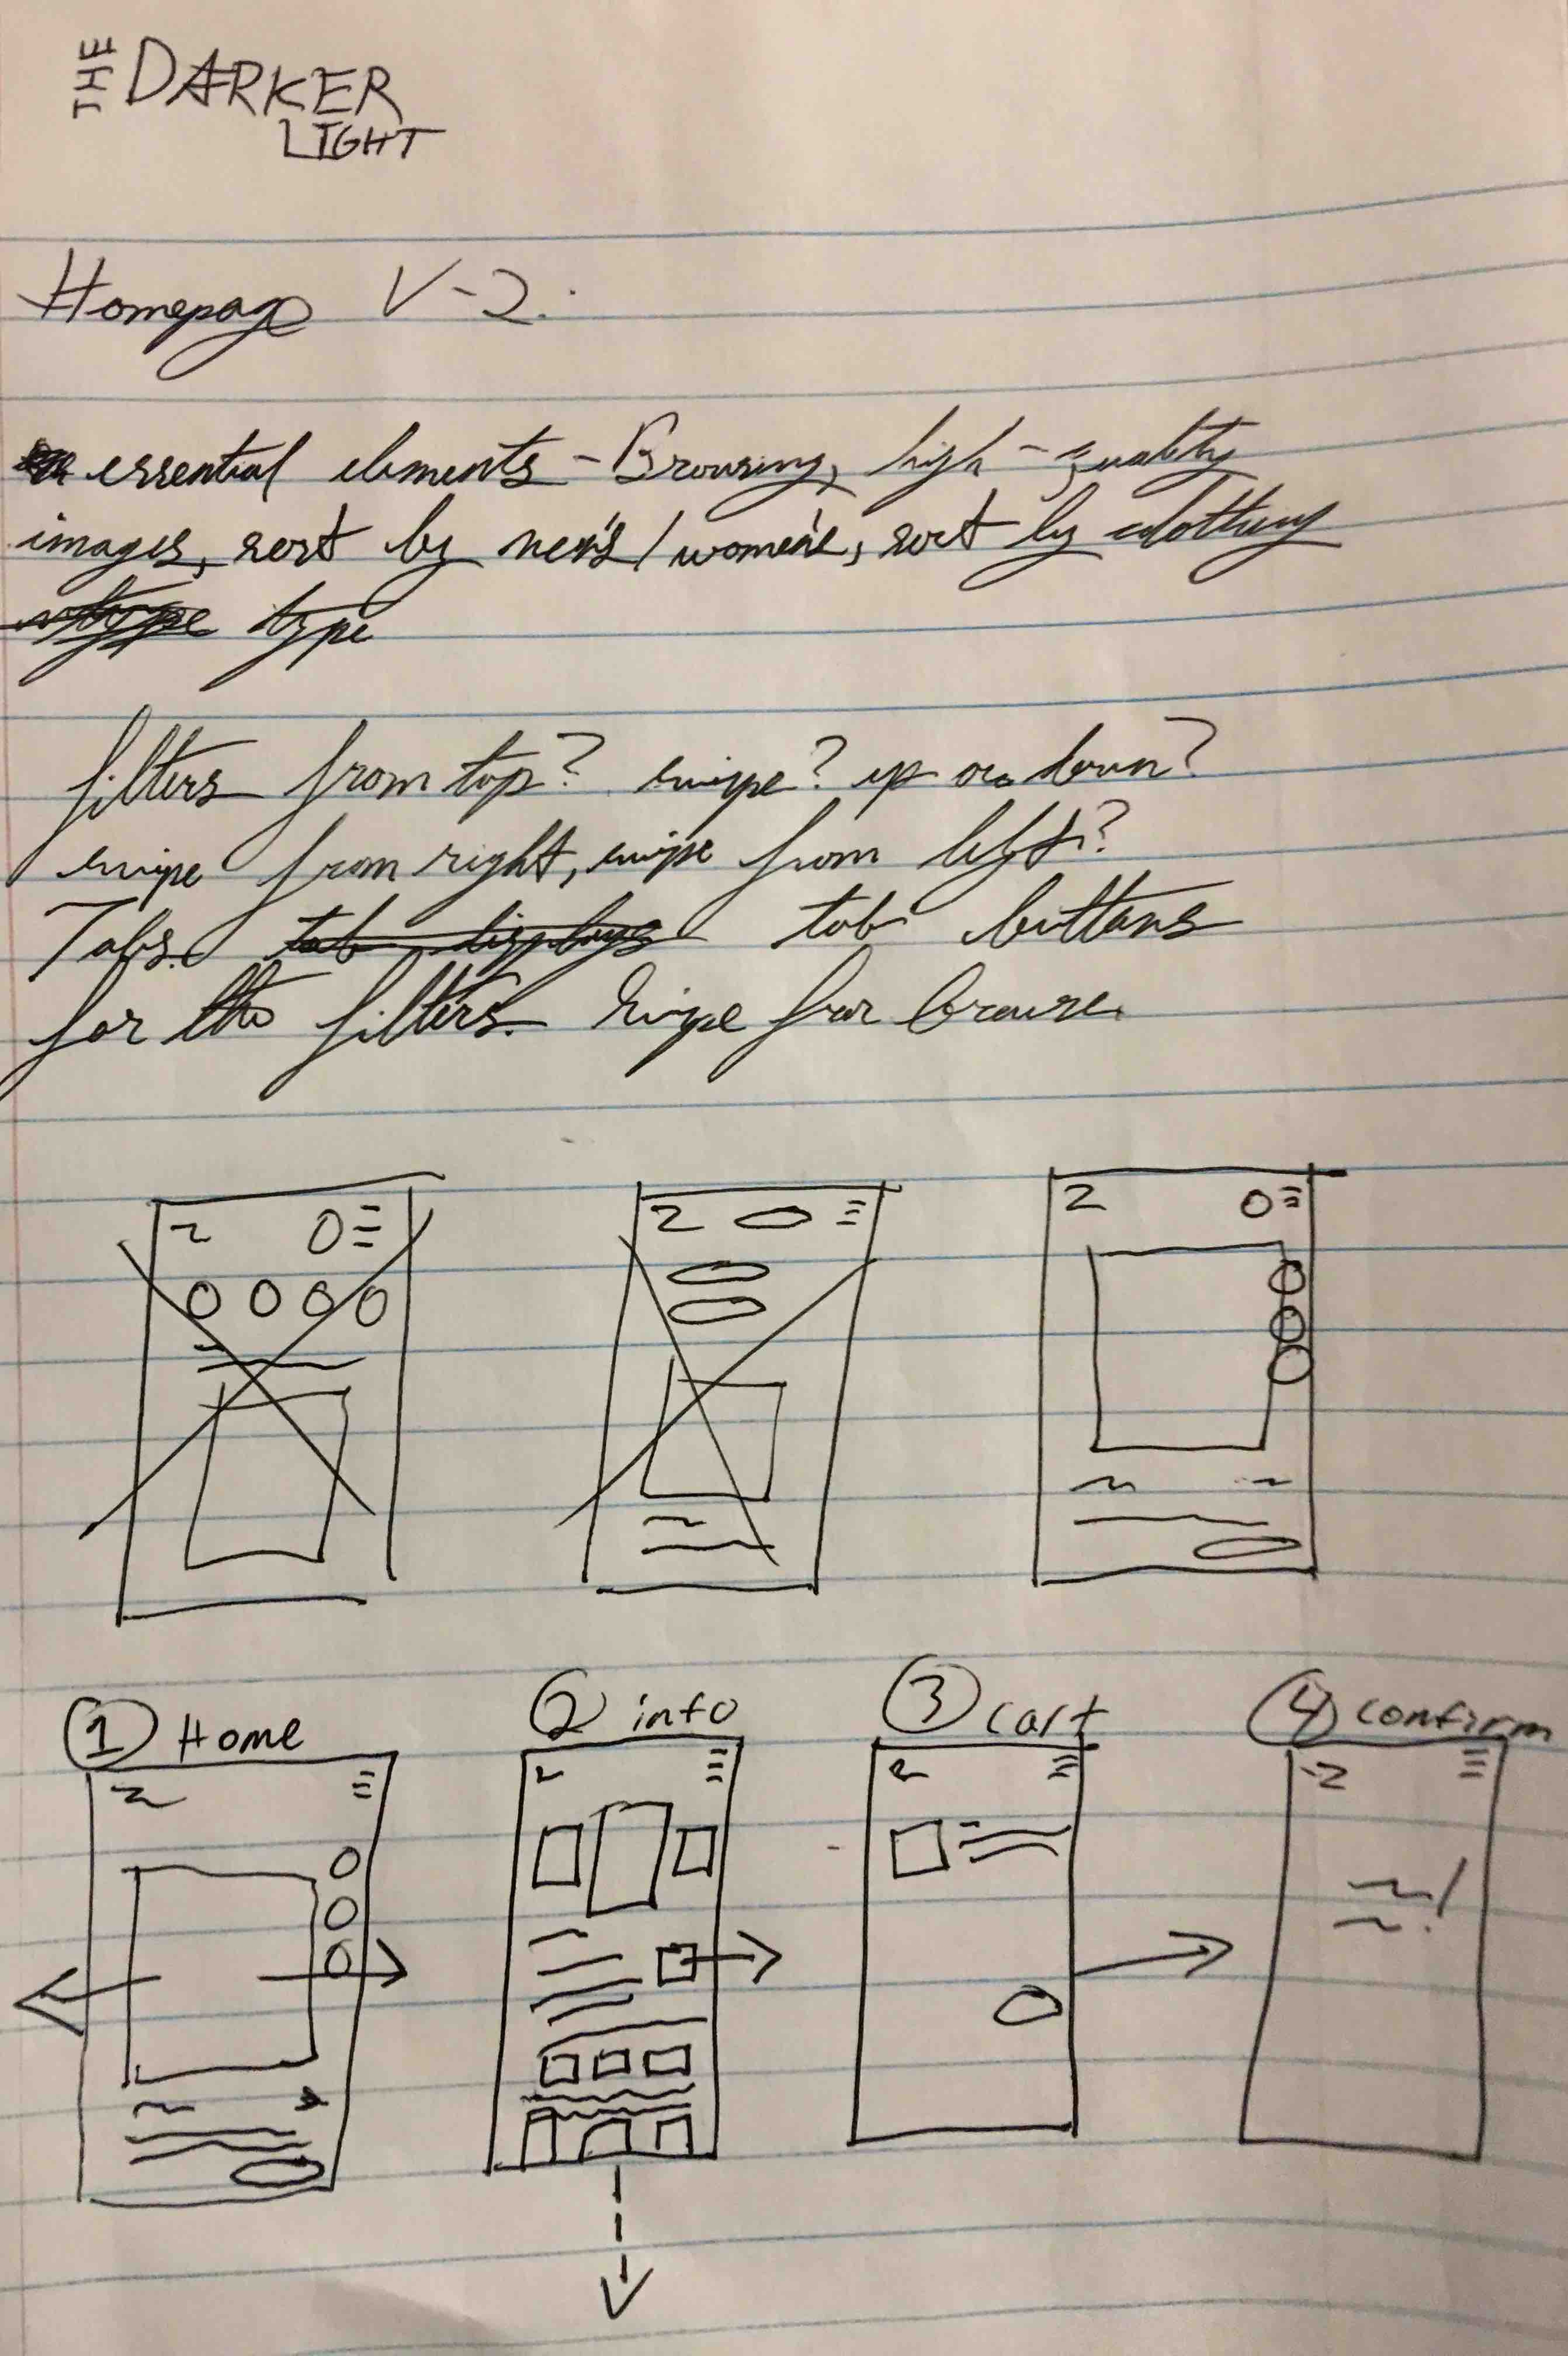 THE DARKER
LIGHT
Homepage V-2.
essential elements - Browsing, high-quality
images, sort by men's/women's, sort by clothing
type type
filters from top? swipe? up or down?
swipe from right, swipe from left?
Tabs. tab displays tab buttons
for the filters. Swipe for browse.
1 Home 2 info 3 cart 4 confirm